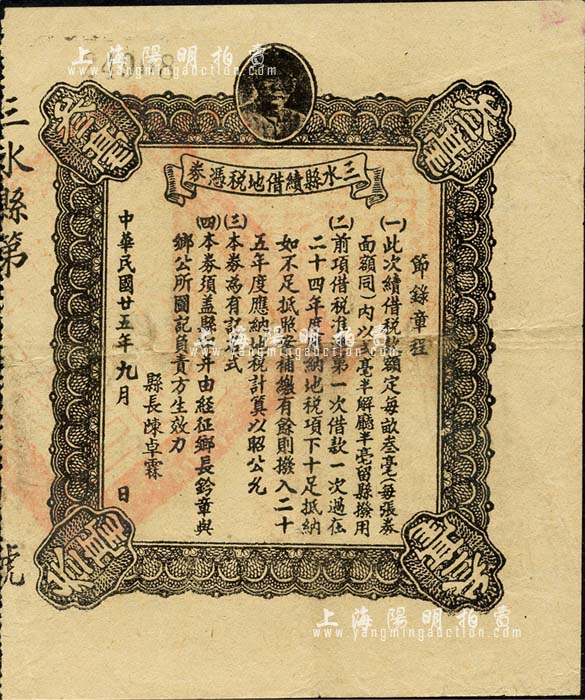 上海陽明拍賣
www.yangmingauction.com
三水縣續借地稅憑券
節錄章程
(一)此次續借稅款額定每畝叁毫(每張券
面額同)內以
毫半解廳半毫留縣撥用
(二)前項借稅准
第一次借款一次過在
二十四年度
納地稅項下十足抵納
如不足抵照
補繳有餘則撥入二十
五年度應納地稅計算以昭公允
(三)本券為有記
式
(四)本券須蓋縣
并由經征鄉長鈐章與
鄉公所圖記負責方生效力
縣長陳卓霖
中華民國廿五年九月 日
三水縣第
號
叁毫
叁毫
叁毫
叁毫
上海陽明拍賣
www.yangmingauction.com